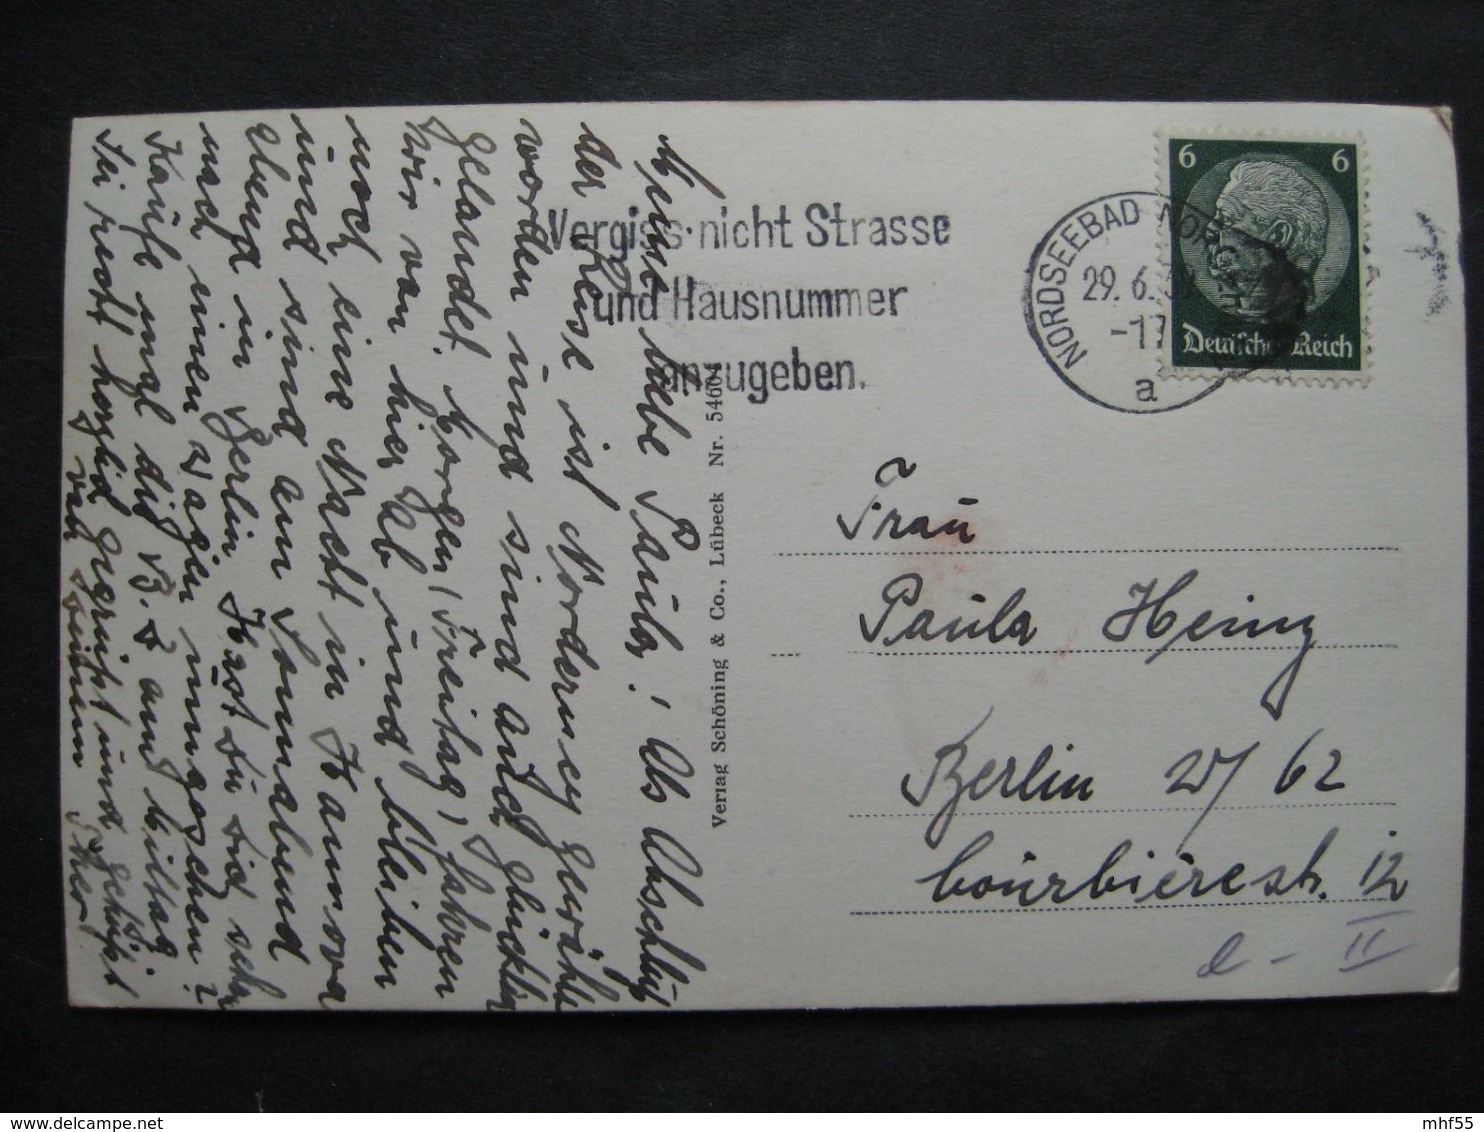 Vergiss nicht Strasse
und Hausnummer
anzugeben.
NORDSEEBAD
29. 6. 3
-17
a
6 6
Deutsches Reich
Frau
Paula Heinz
Berlin W 62
Courbièrestr. 12
II
Verlag Schöning & Co., Lübeck Nr. 54604
Meine liebe Paula! Als Abschluß
der Reise ist Norderney gewählt
worden und sind auch glücklich
gelandet. Morgen, Freitag, fahren
wir von hier ab und bleiben
noch eine Nacht in Hannover
und sind am Sonnabend
abend in Berlin. Hast du dich schon
nach einem Wagen umgesehen?
Kaufe mal die B.Z. am Mittag.
Sei recht herzlich gegrüßt und geküßt
von deinem
mhf55